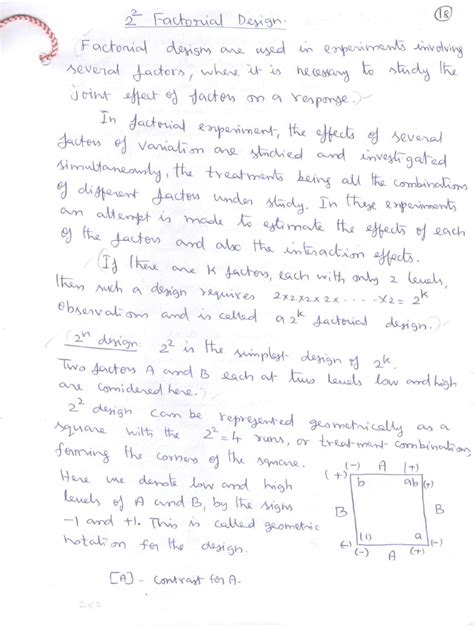 2² Factorial Design.
(18)
(Factorial designs are used in experiments involving
several factors, where it is necessary to study the
joint effect of factors on a response.)
In factorial experiment, the effects of several
factors of variation are studied and investigated
simultaneously, the treatments being all the combinations
of different factors under study. In these experiments
an attempt is made to estimate the effects of each
of the factors and also the interaction effects.
(If there are K factors, each with only 2 levels,
then such a design requires 2×2×2×2×....×2 = 2^k
observations and is called a 2^k factorial design.)
(2^n design: 2² is the simplest design of 2^k.
Two factors A and B each at two levels low and high
are considered here.)
2² design can be represented geometrically as a
square with the 2² = 4 runs, or treatment combination,
forming the corners of the square.
Here we denote low and high
levels of A and B, by the signs
-1 and +1. This is called geometric
notation for the design.
(-) A (+)
(+) b ab (+)
B B
(-) (1) a (-)
(-) A (+)
[A] - Contrast for A.
2×2